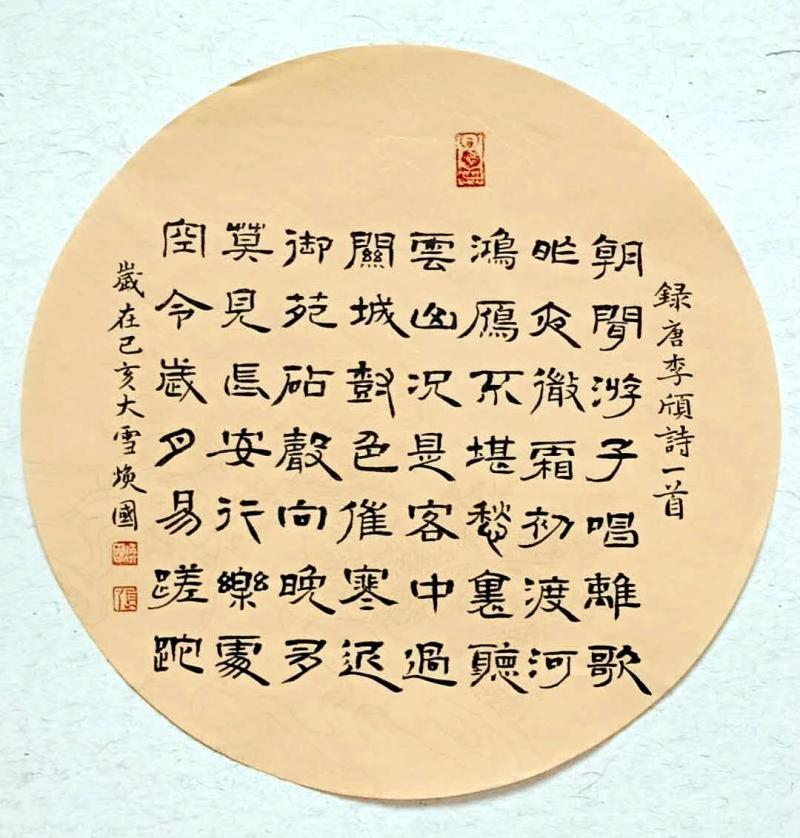 録唐李頎詩一首
朝聞游子唱離歌
昨夜微霜初渡河
鴻鴈不堪愁裏聽
雲山况是客中過
關城鼓色催寒近
御苑砧聲向晚多
莫見長安行樂處
空令歲月易蹉跎
歲在己亥大雪煥國